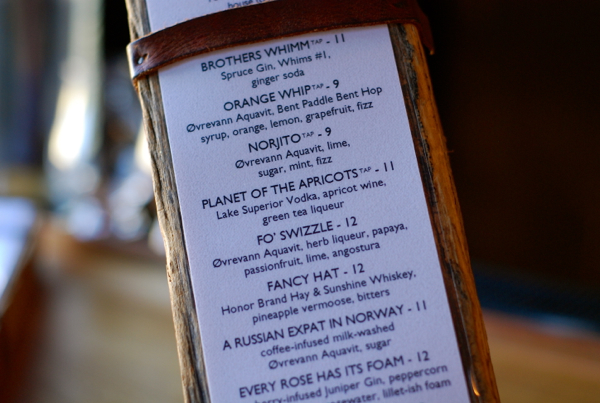 house
BROTHERS WHIMM TAP - 11
Spruce Gin, Whims #1,
ginger soda
ORANGE WHIP TAP - 9
Øvrevann Aquavit, Bent Paddle Bent Hop
syrup, orange, lemon, grapefruit, fizz
NORJITO TAP - 9
Øvrevann Aquavit, lime,
sugar, mint, fizz
PLANET OF THE APRICOTS TAP - 11
Lake Superior Vodka, apricot wine,
green tea liqueur
FO' SWIZZLE - 12
Øvrevann Aquavit, herb liqueur, papaya,
passionfruit, lime, angostura
FANCY HAT - 12
Honor Brand Hay & Sunshine Whiskey,
pineapple vermoose, bitters
A RUSSIAN EXPAT IN NORWAY - 11
coffee-infused milk-washed
Øvrevann Aquavit, sugar
EVERY ROSE HAS ITS FOAM - 12
-infused Juniper Gin, peppercorn
lillet-ish foam